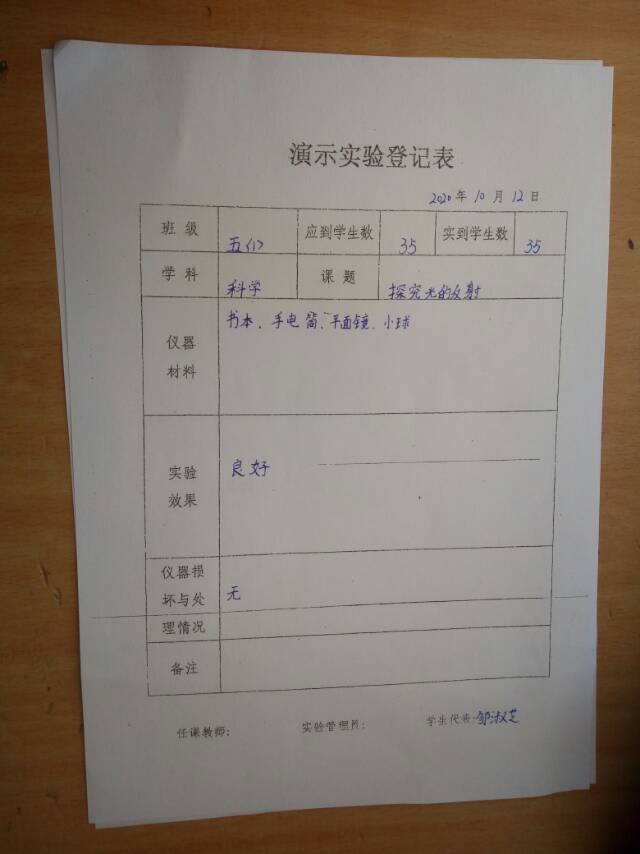 演示实验登记表
2020年10月12日
班级 五(1) 应到学生数 35 实到学生数 35
学科 科学 课题 探究光的反射
仪器材料 书本、手电筒、平面镜、小球
实验效果 良好
仪器损坏与处理情况 无
备注
任课教师: 实验管理员: 学生代表:邹淑芝